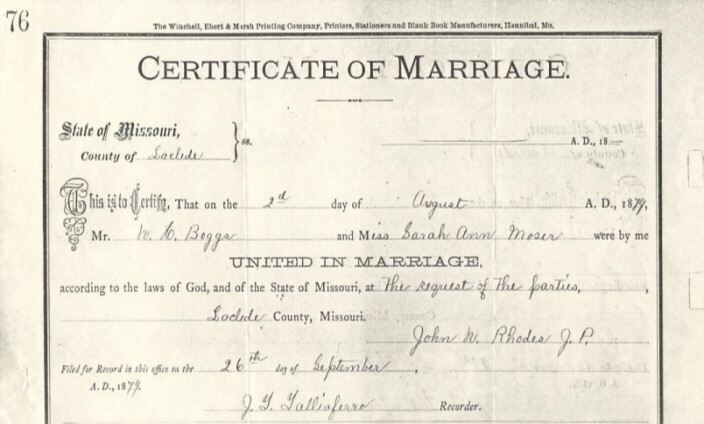 76
The Winchell, Ebert & Marsh Printing Company, Printers, Stationers and Blank Book Manufacturers, Hannibal, Mo.
CERTIFICATE OF MARRIAGE.
State of Missouri,
County of Laclede } ss.
A. D., 18
This is to Certify, That on the 2d day of August A. D., 1879,
Mr. W. C. Boggs and Miss Sarah Ann Moser were by me
UNITED IN MARRIAGE,
according to the laws of God, and of the State of Missouri, at The request of The parties, ,
Laclede County, Missouri.
John W. Rhodes J. P.
Filed for Record in this office on the 26th day of September ,
A. D., 1879.
J. T. Talliaferro Recorder.